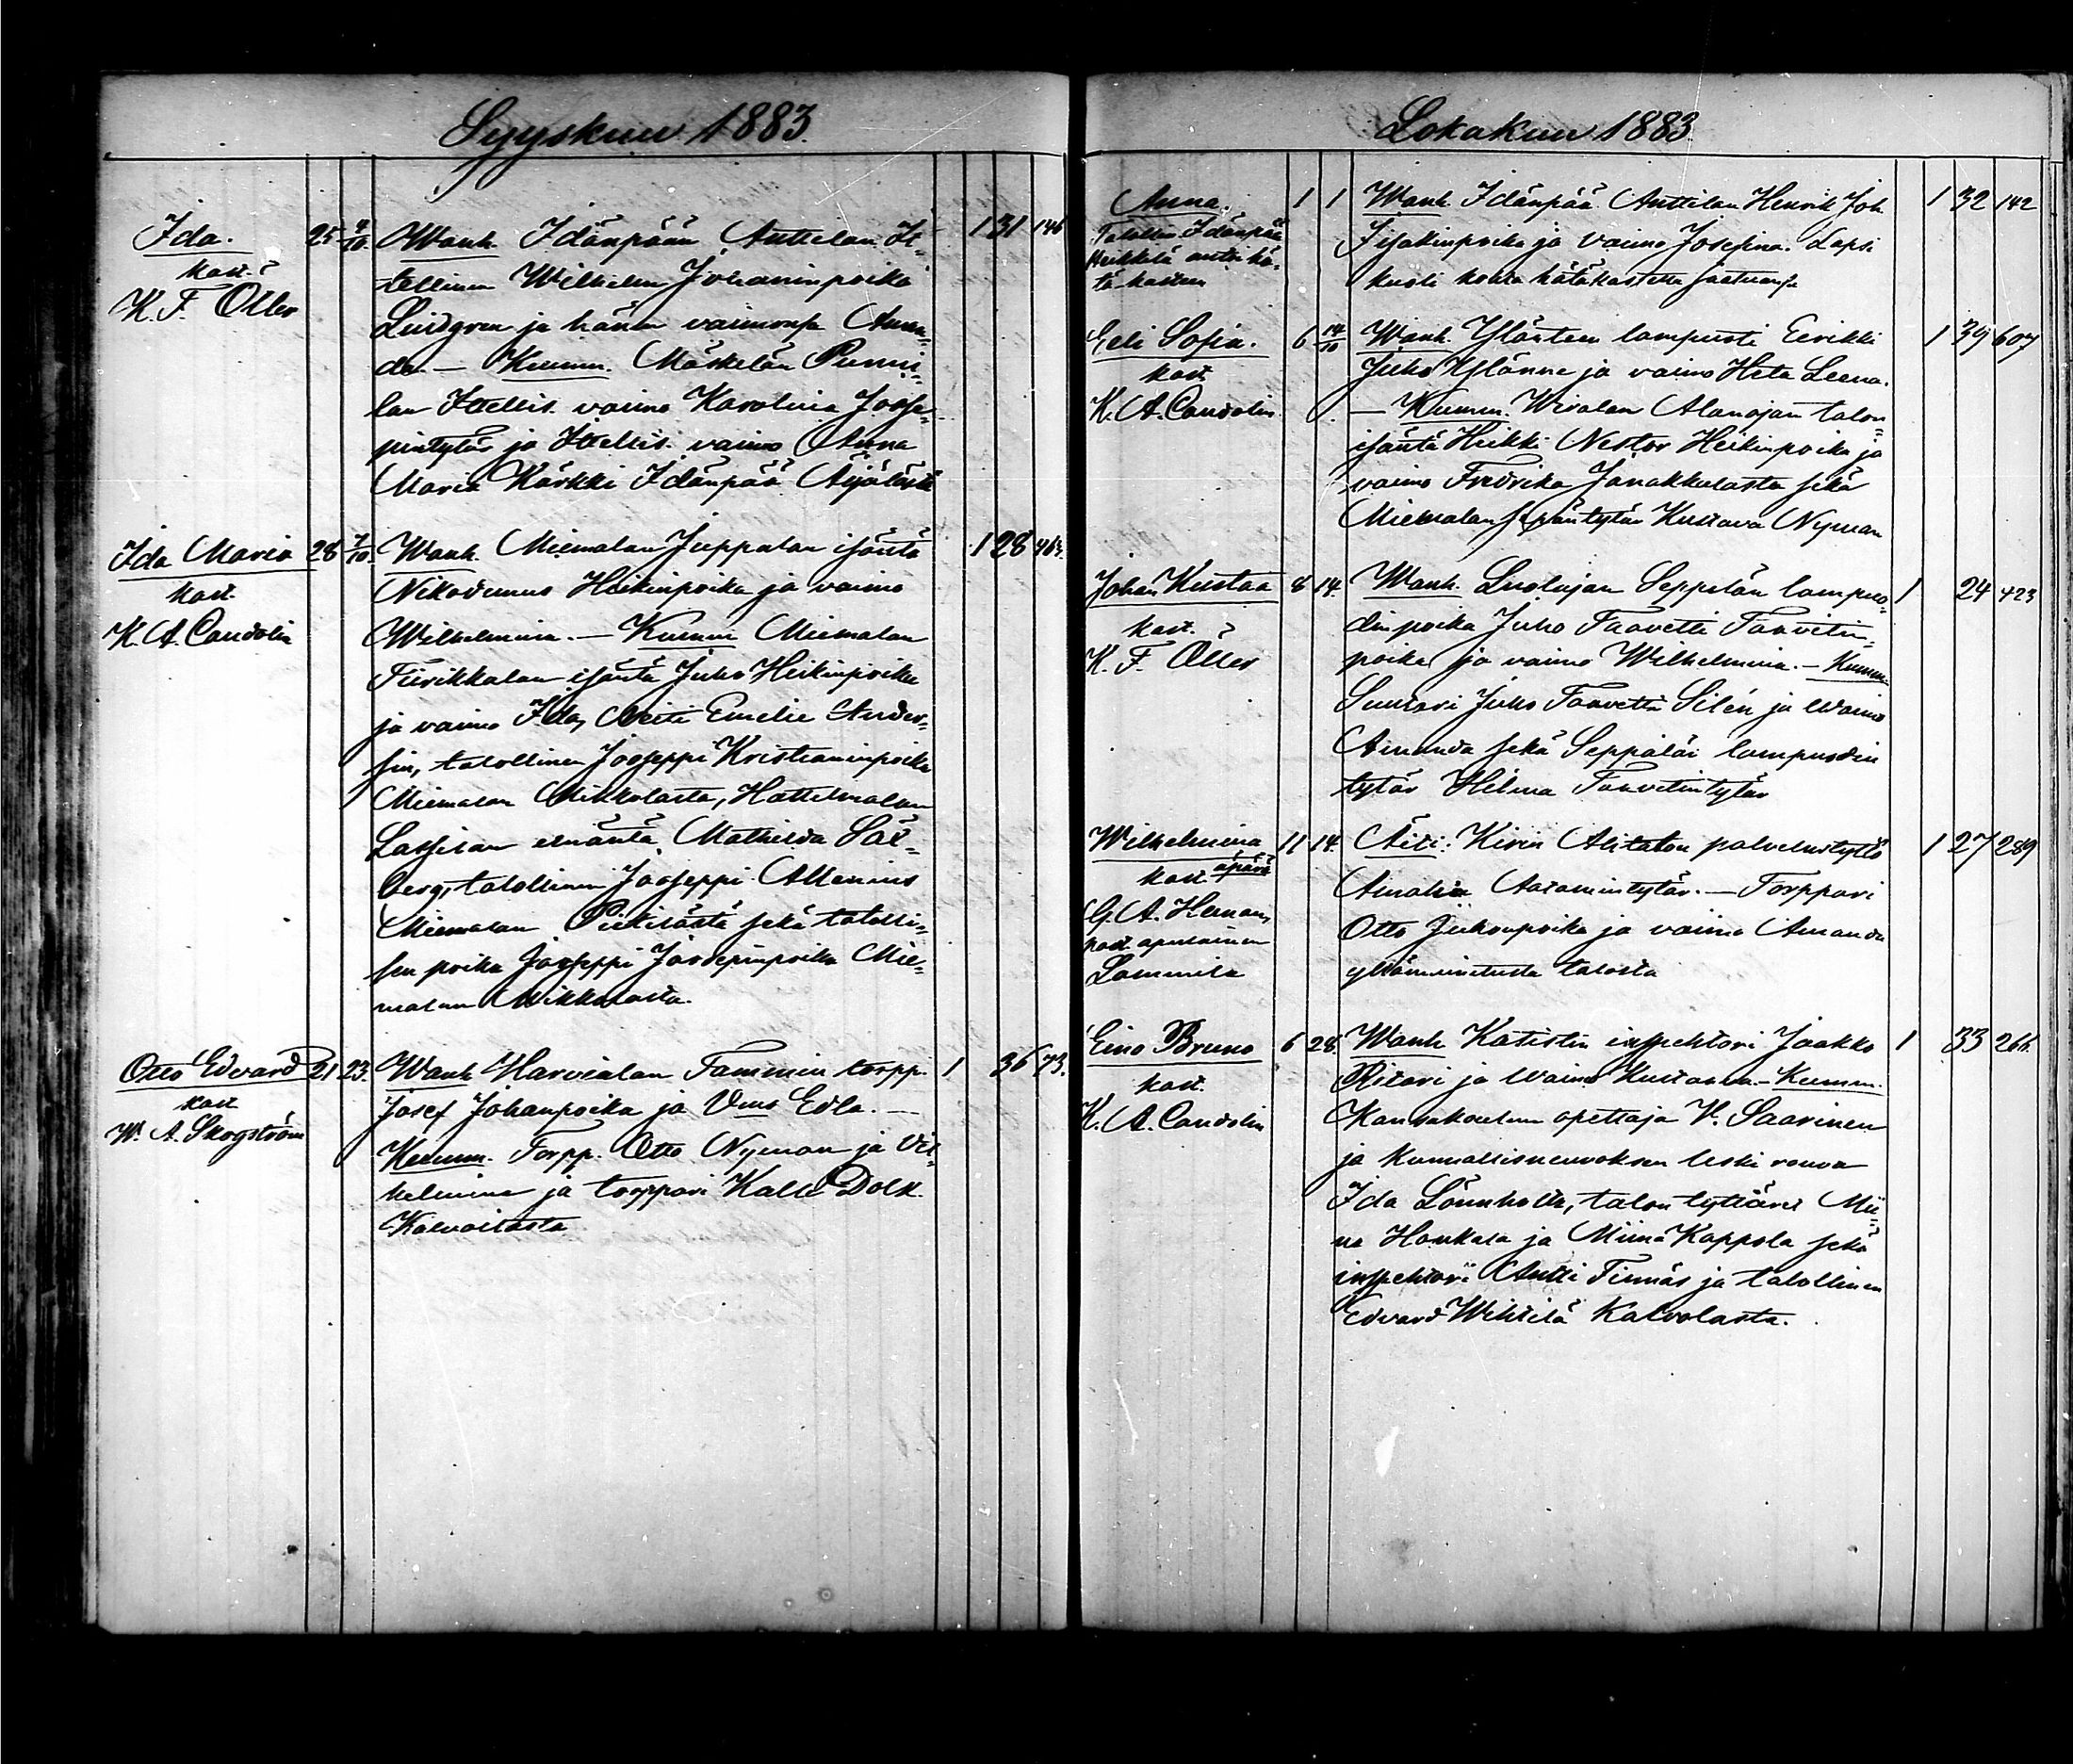 Syyskuu 1883.
Ida.
kast.
K. F. Öller
25 4/10.
Wanh. Idänpään Anttilan It-
tellinen Wilhelm Johaninpoika
Lindgren ja hänen vaimonsa Aman-
da — Kumm. Mäskelän Punni-
lan Itellis. vaimo Karolina Joose-
pintytär ja Itellis. vaimo Anna
Maria Kärkki Idänpää Äijälästä
1 31 146
Ida Maria
kast.
K. A. Candolin
28 7/10.
Wanh. Miemalan Juppalan isäntä
Nikodemus Heikinpoika ja vaimo
Wilhelmina. — Kumm Miemalan
Fiirikkalan isäntä Juho Heikinpoika
ja vaimo Ida, Neiti Emelie Ander-
sin, talollinen Jooseppi Kristianinpoika
Miemalan Mikkolasta, Hattelmalan
Lassilan emäntä Mathilda Säl-
berg, talollinen Jooseppi Allenius
Miemalan Pietilästä sekä talolli-
sen poika Jooseppi Joosepinpoika Mie-
malan Mikkolasta.
1 28 463.
Otto Edvard
kast
W. A. Skogström
21 23.
Wanh Harvialan Tammin torpp.
Josef Johanpoika ja Vms Edla. —
Kumm. Torpp. Otto Nyman ja Vil-
helmina ja torppari Kalle Dolk.
Kalvolasta
1 36 73.
Lokakuu 1883
Anna.
Talollin. Idänpää
Heikkilä antoi hä-
tä-kasteen
1 1
Wanh. Idänpää Anttilan Henrik Joh.
Iisakinpoika ja vaimo Josefina. Lapsi
kuoli kohta hätäkasteen saatuansa
1 32 142
Eeli Sofia.
kast
K. A. Candolin.
6 14/10
Wanh. Ylänteen lampuoti Eerikki
Juho Ylänne ja vaimo Heta Leena.
— Kumm. Wiralan Alanojan talon
isäntä Heikki Nestor Heikinpoika ja
vaimo Fredrika Janakkalasta sekä
Miemalan sepäntytär Kustava Nyman
1 39 607
Johan Kustaa
kast.
K. F. Öller
8 14.
Wanh. Luolajan Seppälän lampuo-
din poika Juho Taavetti Taavetin-
poika ja vaimo Wilhelmina. — Kumm.
Suutari Juho Taavetti Silén ja Waimo
Amanda sekä Seppälän lampuodin
tytär Hilma Taavetintytär
1 24 423
Wilhelmina
kast. äpärä
G. A. Heman,
past. apulainen
Lammila
11 14.
Äiti: Kirin Alitalon palvelustyttö
Amalia Aatamintytär. — Torppari
Otto Juhonpoika ja vaimo Amanda
yllämainitusta talosta
1 27 289
Eino Bruno
kast.
K. A. Candolin
6 28.
Wanh Katistin inspehtori Jaakko
Ritari ja Waimo Kustaava. — Kumm.
Kansakoulun opettaja V. Saarinen
ja Kunnallisneuvoksen leski rouva
Ida Lönnholtz, talon tyttäret Mii-
na Honkala ja Miina Kappola sekä
inspehtori Antti Finnäs ja talollinen
Edvard Wihtilä Kalvolasta.
1 33 266.